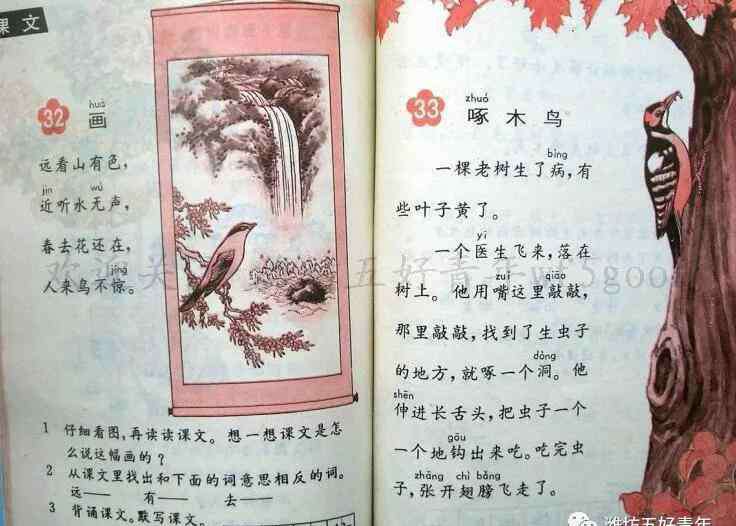 课文
huà
32 画
远看山有色，
jìn wú
近听水无声，
春去花还在，
jīng
人来鸟不惊。
1 仔细看图，再读读课文。想一想课文是怎
么说这幅画的？
2 从课文里找出和下面的词意思相反的词。
远—— 有—— 去——
3 背诵课文。默写课文。
zhuó
33 啄木鸟
bìng
一棵老树生了病，有
些叶子黄了。
yī
一个医生飞来，落在
zuǐ qiāo
树上。他用嘴这里敲敲，
那里敲敲，找到了生虫子
dòng
的地方，就啄一个洞。他
shēn
伸进长舌头，把虫子一个
gōu
一个地钩出来吃。吃完虫
zhāng chì bǎng
子，张开翅膀飞走了。
潍坊五好青年